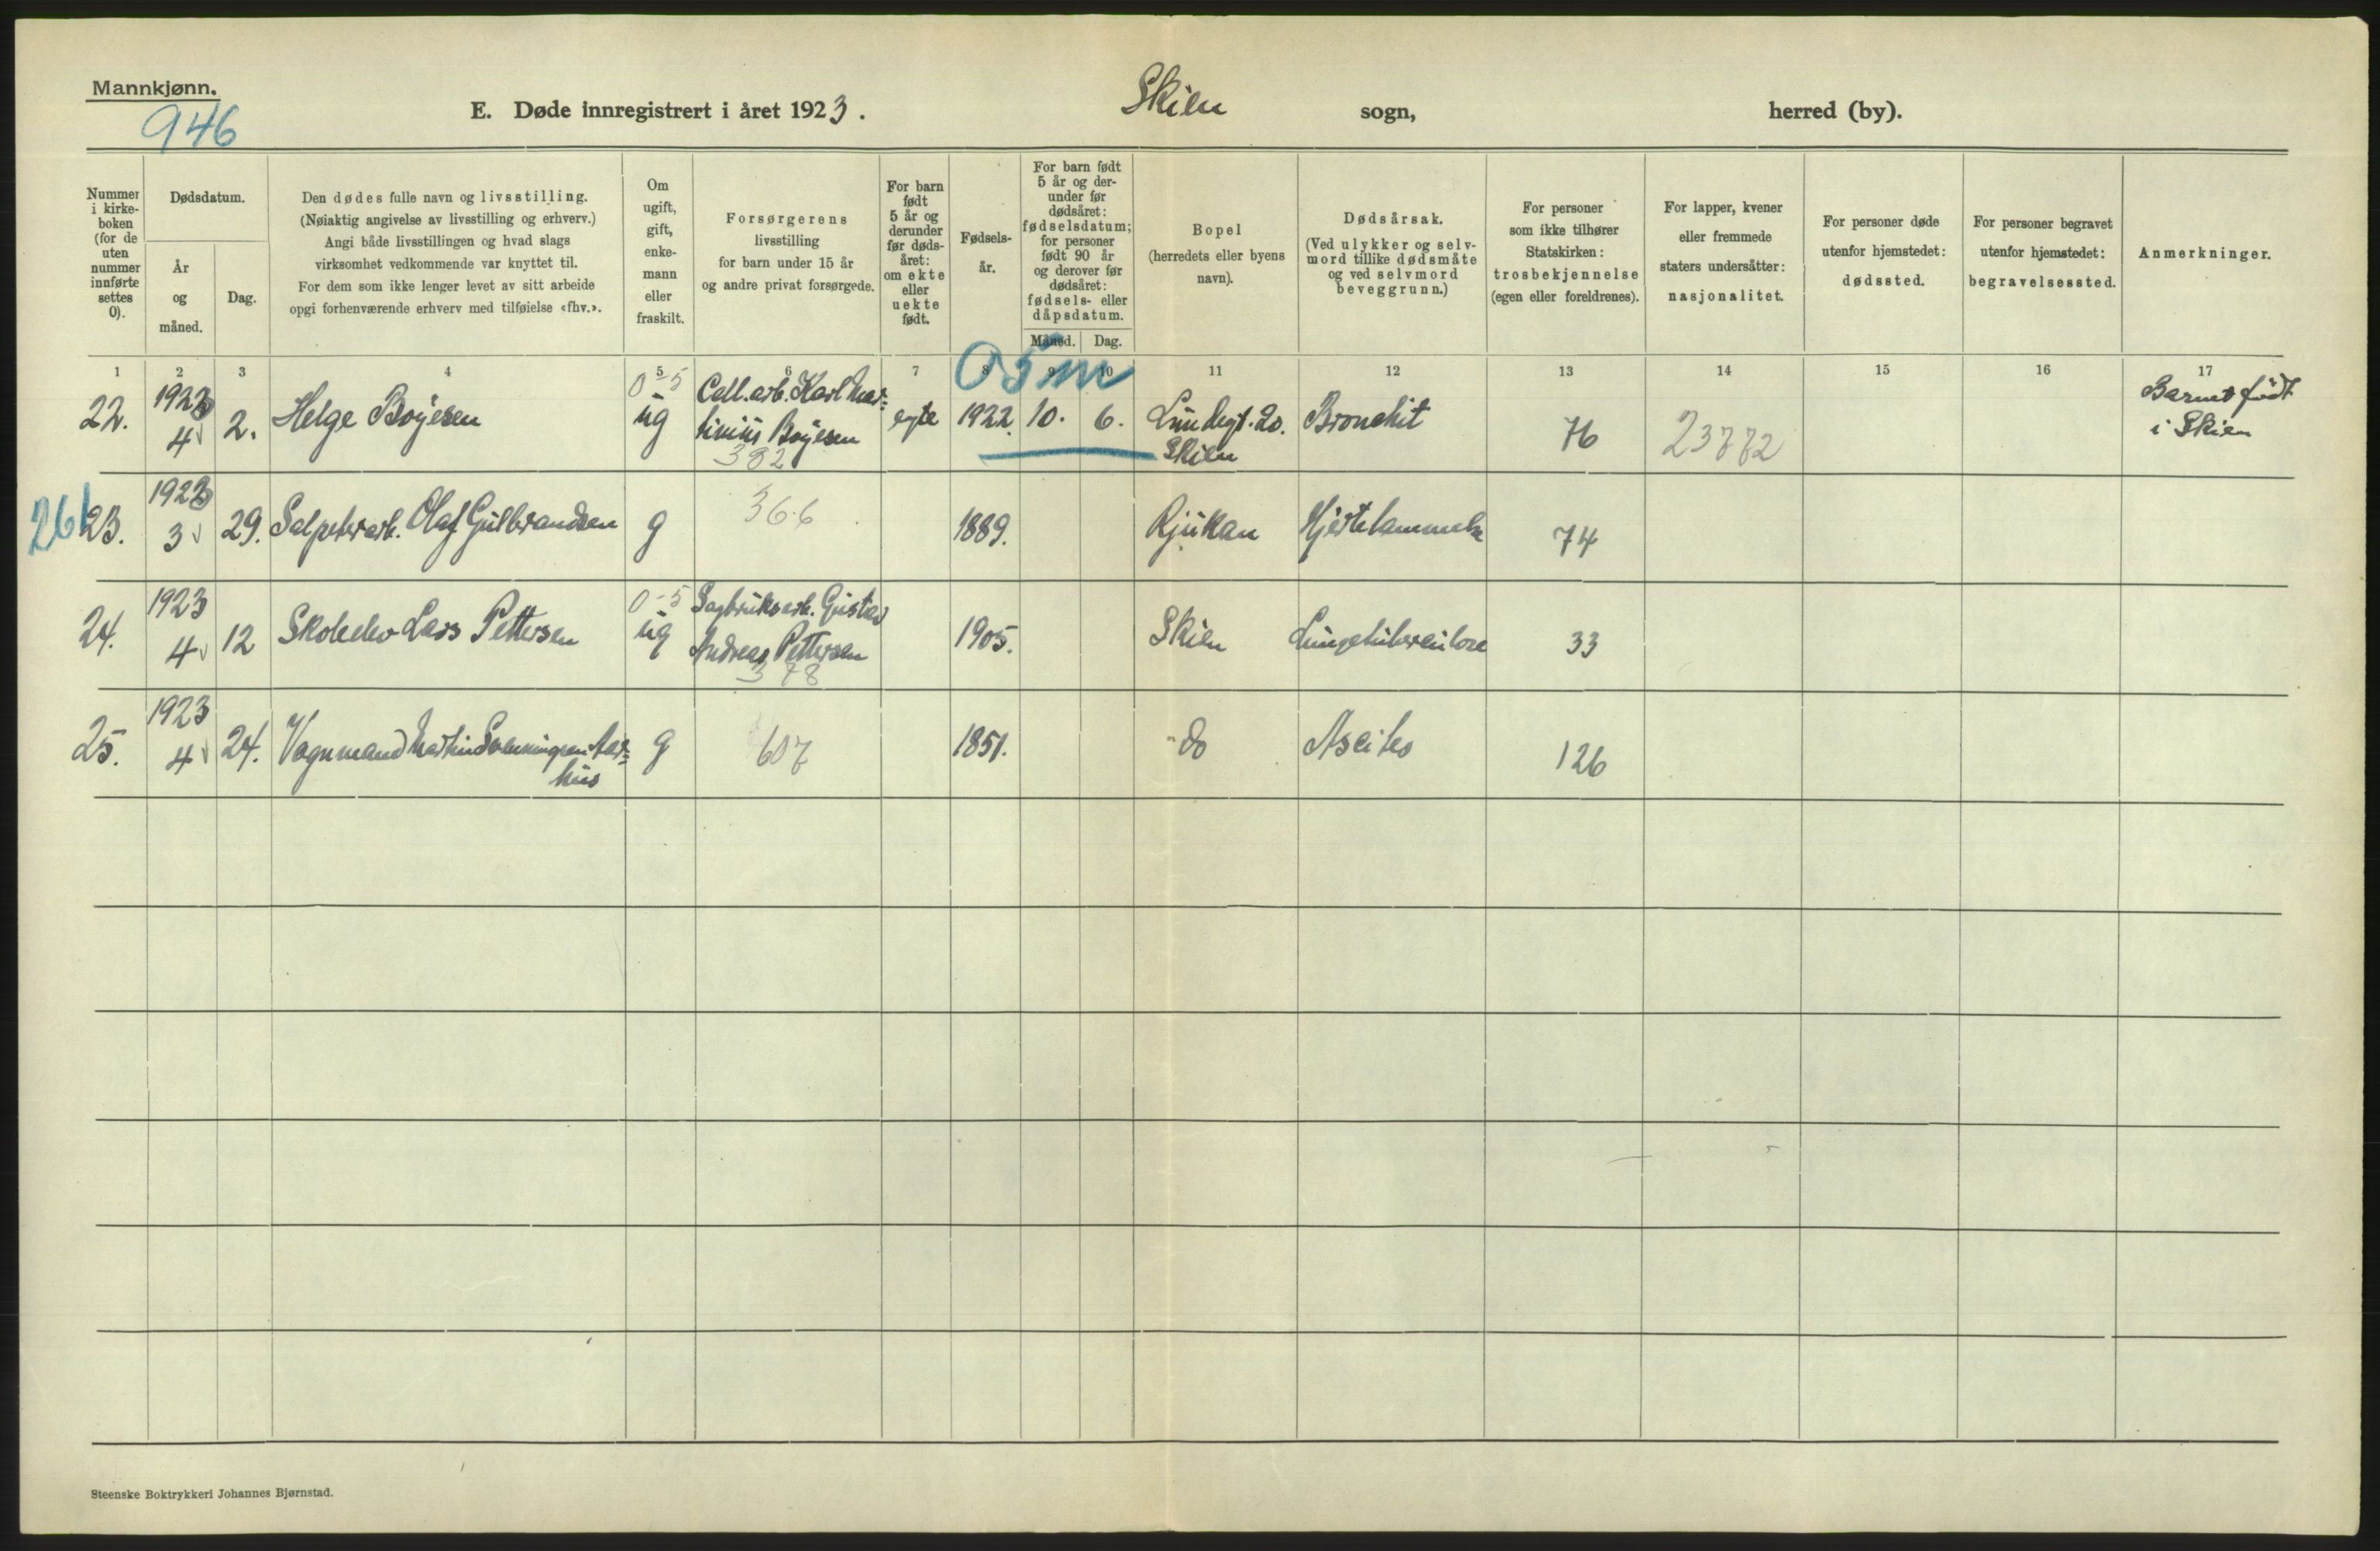 Mannkjønn.
946
E. Døde innregistrert i året 1923.
Skien sogn,
herred (by).
Nummer
i kirke-
boken
(for de
uten
nummer
innførte
settes
0).
Dødsdatum.
År
og
måned.
Dag.
Den dødes fulle navn og livsstilling.
(Nøiaktig angivelse av livsstilling og erhverv.)
Angi både livsstillingen og hvad slags
virksomhet vedkommende var knyttet til.
For dem som ikke lenger levet av sitt arbeide
opgi forhenværende erhverv med tilføielse «fhv.».
Om
ugift,
gift,
enke-
mann
eller
fraskilt.
Forsørgerens
livsstilling
for barn under 15 år
og andre privat forsørgede.
For barn
født
5 år og
derunder
før døds-
året:
om ekte
eller
uekte
født.
Fødsels-
år.
For barn født
5 år og der-
under før
dødsåret:
fødselsdatum;
for personer
født 90 år
og derover før
dødsåret:
fødsels- eller
dåpsdatum.
Måned. Dag.
Bopel
(herredets eller byens
navn).
Dødsårsak.
(Ved ulykker og selv-
mord tillike dødsmåte
og ved selvmord
beveggrunn.)
For personer
som ikke tilhører
Statskirken:
trosbekjennelse
(egen eller foreldrenes).
For lapper, kvener
eller fremmede
staters undersåtter:
nasjonalitet.
For personer døde
utenfor hjemstedet:
dødssted.
For personer begravet
utenfor hjemstedet:
begravelsessted.
Anmerkninger.
1 2 3 4 5 6 7 8 9 10 11 12 13 14 15 16 17
05m
22. 1923 4 2. Helge Bøyesen 0-5 ug Cell.arb. Karl Mar-
tinius Bøyesen 382 egte 1922. 10. 6. Lundegt. 20.
Skien Bronchit 76 23772 Barnet født
i Skien
261
23. 1923 3 29. Salpeterarb. Olaf Gulbrandsen g 366 1889. Rjukan Hjertelammelse 74
24. 1923 4 12 Skoleelev Lars Pettersen 0-5 ug Sagbruksarb. Gustav
Andreas Pettersen 378 1905. Skien Lungetuberculose 33
25. 1923 4 24. Vognmand Martin Svenningsen Aar-
hus g 607 1851. do Ascites 126
Steenske Boktrykkeri Johannes Bjørnstad.